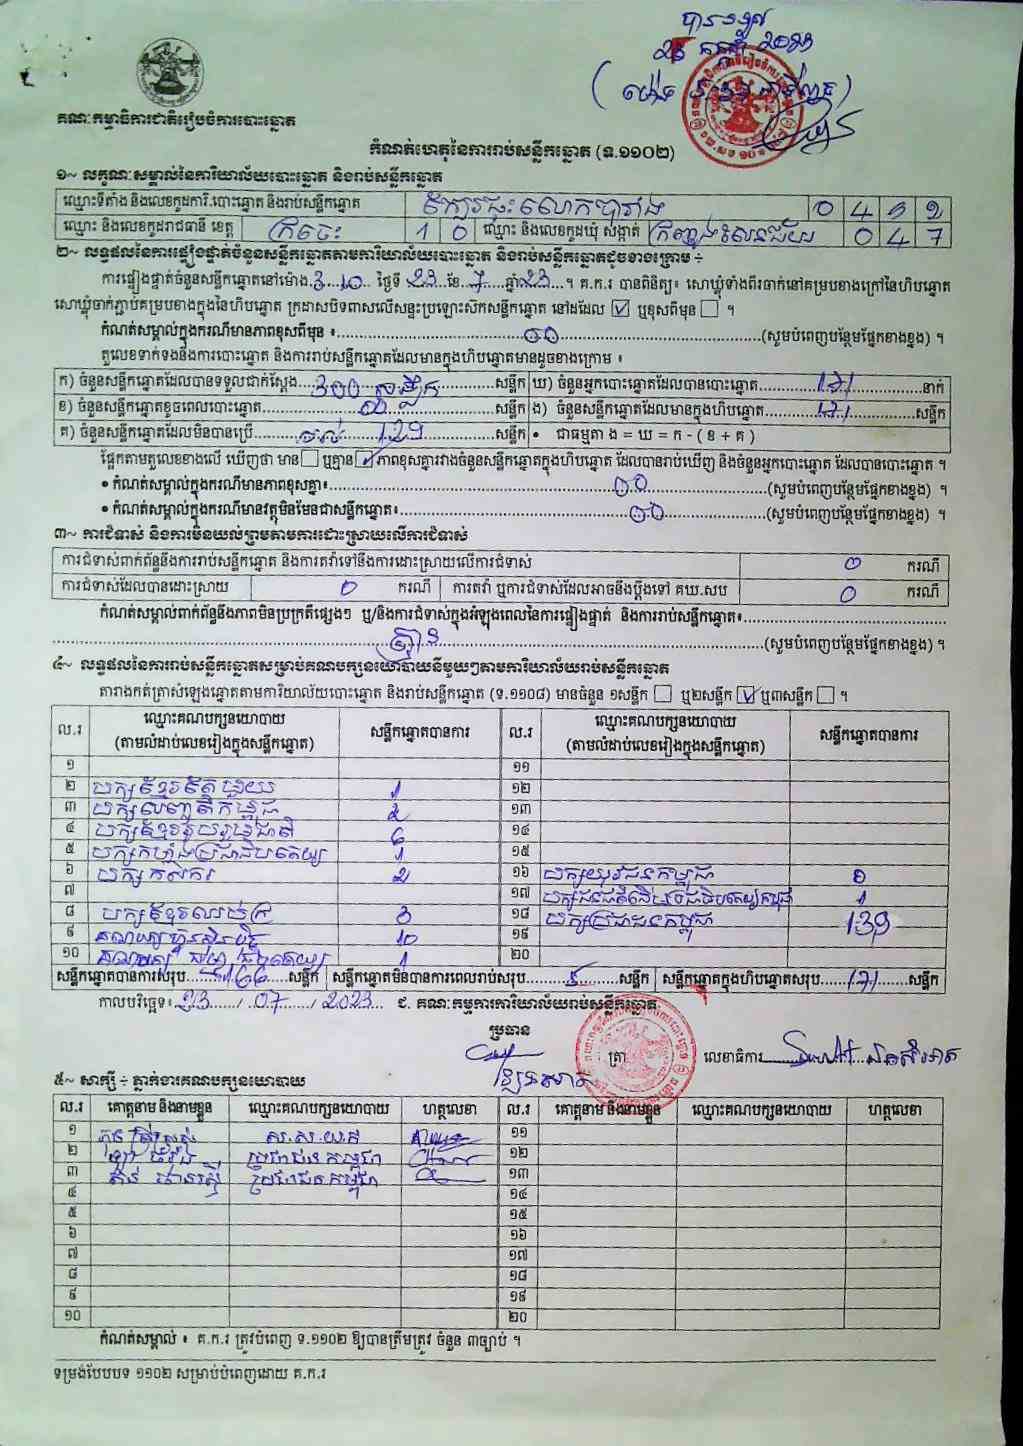 បានទទួល
គណៈកម្មាធិការជាតិរៀបចំការបោះឆ្នោត
កំណត់ហេតុនៃការរាប់សន្លឹកឆ្នោត (ទ.១១០២)
១~ លក្ខណៈសម្គាល់នៃការិយាល័យបោះឆ្នោត និងរាប់សន្លឹកឆ្នោត
ឈ្មោះទីតាំង និងលេខកូដការិ.បោះឆ្នោត និងរាប់សន្លឹកឆ្នោត
ឈ្មោះ និងលេខកូដរាជធានី ខេត្ត ក្រចេះ 1 0 ឈ្មោះ និងលេខកូដឃុំ សង្កាត់ 0 4 7
២~ លទ្ធផលនៃការផ្ទៀងផ្ទាត់ចំនួនសន្លឹកឆ្នោតតាមការិយាល័យបោះឆ្នោត និងរាប់សន្លឹកឆ្នោតដូចខាងក្រោម ÷
ការផ្ទៀងផ្ទាត់ចំនួនសន្លឹកឆ្នោតនៅម៉ោង 3 10 ថ្ងៃទី 23 ខែ 7 ឆ្នាំ 23 ។ គ.ក.រ បានពិនិត្យ៖ សោឃ្លុំទាំងពីរចាក់នៅគម្របខាងក្រៅនៃហិបឆ្នោត
សោឃ្លុំចាក់ភ្ជាប់គម្របខាងក្នុងនៃហិបឆ្នោត ក្រដាសបិទពាសលើសន្ទះប្រឡោះសឹកសន្លឹកឆ្នោត នៅដដែល ☑ ឬខុសពីមុន ☐ ។
កំណត់សម្គាល់ក្នុងករណីមានភាពខុសពីមុន ៖ 00 (សូមបំពេញបន្ថែមផ្នែកខាងខ្នង) ។
តួលេខទាក់ទងនឹងការបោះឆ្នោត និងការរាប់សន្លឹកឆ្នោតដែលមានក្នុងហិបឆ្នោតមានដូចខាងក្រោម ៖
ក) ចំនួនសន្លឹកឆ្នោតដែលបានទទួលជាក់ស្តែង 300 សន្លឹក សន្លឹក ឃ) ចំនួនអ្នកបោះឆ្នោតដែលបានបោះឆ្នោត 171 នាក់
ខ) ចំនួនសន្លឹកឆ្នោតខូចពេលបោះឆ្នោត សន្លឹក ង) ចំនួនសន្លឹកឆ្នោតដែលមានក្នុងហិបឆ្នោត 171 សន្លឹក
គ) ចំនួនសន្លឹកឆ្នោតដែលមិនបានប្រើ 129 សន្លឹក • ជាធម្មតា ង = ឃ = ក - ( ខ + គ )
ផ្អែកតាមតួលេខខាងលើ ឃើញថា មាន ☐ ឬគ្មាន ☑ ភាពខុសគ្នារវាងចំនួនសន្លឹកឆ្នោតក្នុងហិបឆ្នោត ដែលបានរាប់ឃើញ និងចំនួនអ្នកបោះឆ្នោត ដែលបានបោះឆ្នោត ។
• កំណត់សម្គាល់ក្នុងករណីមានភាពខុសគ្នា៖ 00 (សូមបំពេញបន្ថែមផ្នែកខាងខ្នង) ។
• កំណត់សម្គាល់ក្នុងករណីមានវត្ថុមិនមែនជាសន្លឹកឆ្នោត៖ 00 (សូមបំពេញបន្ថែមផ្នែកខាងខ្នង) ។
៣~ ការជំទាស់ និងការមិនយល់ព្រមតាមការដោះស្រាយលើការជំទាស់
ការជំទាស់ពាក់ព័ន្ធនឹងការរាប់សន្លឹកឆ្នោត និងការតវ៉ាទៅនឹងការដោះស្រាយលើការជំទាស់ 0 ករណី
ការជំទាស់ដែលបានដោះស្រាយ 0 ករណី ការតវ៉ា ឬការជំទាស់ដែលអាចនឹងប្តឹងទៅ គឃ.សប 0 ករណី
កំណត់សម្គាល់ពាក់ព័ន្ធនឹងភាពមិនប្រក្រតីផ្សេងៗ ឬ/និងការជំទាស់ក្នុងអំឡុងពេលនៃការផ្ទៀងផ្ទាត់ និងការរាប់សន្លឹកឆ្នោត៖
គ្មាន (សូមបំពេញបន្ថែមផ្នែកខាងខ្នង) ។
៤~ លទ្ធផលនៃការរាប់សន្លឹកឆ្នោតសម្រាប់គណបក្សនយោបាយនីមួយៗតាមការិយាល័យរាប់សន្លឹកឆ្នោត
តារាងកត់ត្រាសំឡេងឆ្នោតតាមការិយាល័យបោះឆ្នោត និងរាប់សន្លឹកឆ្នោត (ទ.១១០៨) មានចំនួន ១សន្លឹក ☐ ឬ២សន្លឹក ☑ ឬ៣សន្លឹក ☐ ។
ល.រ ឈ្មោះគណបក្សនយោបាយ (តាមលំដាប់លេខរៀងក្នុងសន្លឹកឆ្នោត) សន្លឹកឆ្នោតបានការ ល.រ ឈ្មោះគណបក្សនយោបាយ (តាមលំដាប់លេខរៀងក្នុងសន្លឹកឆ្នោត) សន្លឹកឆ្នោតបានការ
១ ១១
២ 1 ១២
៣ 2 ១៣
៤ បក្សខ្មែររួបរួមជាតិ 6 ១៤
៥ បក្សកម្លាំងប្រជាធិបតេយ្យ 1 ១៥
៦ បក្សកសិករ 2 ១៦ បក្សយុវជនកម្ពុជា
៧ ១៧ 1
៨ បក្សខ្មែរឈប់ក្រ 3 ១៨ បក្សប្រជាជនកម្ពុជា 139
៩ គណបក្សហ៊្វុនស៊ិនប៉ិច 10 ១៩
១០ 1 ២០
សន្លឹកឆ្នោតបានការសរុប 166 សន្លឹក សន្លឹកឆ្នោតមិនបានការពេលរាប់សរុប 5 សន្លឹក សន្លឹកឆ្នោតក្នុងហិបឆ្នោតសរុប 171 សន្លឹក
កាលបរិច្ឆេទ៖ 23 / 07 / 2023 ជ. គណៈកម្មការការិយាល័យរាប់សន្លឹកឆ្នោត
ប្រធាន
ត្រា លេខាធិការ
៥~ សាក្សី ÷ ភ្នាក់ងារគណបក្សនយោបាយ
ល.រ គោត្តនាម និងនាមខ្លួន ឈ្មោះគណបក្សនយោបាយ ហត្ថលេខា ល.រ គោត្តនាម និងនាមខ្លួន ឈ្មោះគណបក្សនយោបាយ ហត្ថលេខា
១ ស.ស.យ.ក ១១
២ ប្រជាជនកម្ពុជា ១២
៣ ប្រជាជនកម្ពុជា ១៣
៤ ១៤
៥ ១៥
៦ ១៦
៧ ១៧
៨ ១៨
៩ ១៩
១០ ២០
កំណត់សម្គាល់ ៖ គ.ក.រ ត្រូវបំពេញ ទ.១១០២ ឱ្យបានត្រឹមត្រូវ ចំនួន ៣ច្បាប់ ។
ទម្រង់បែបបទ ១១០២ សម្រាប់បំពេញដោយ គ.ក.រ